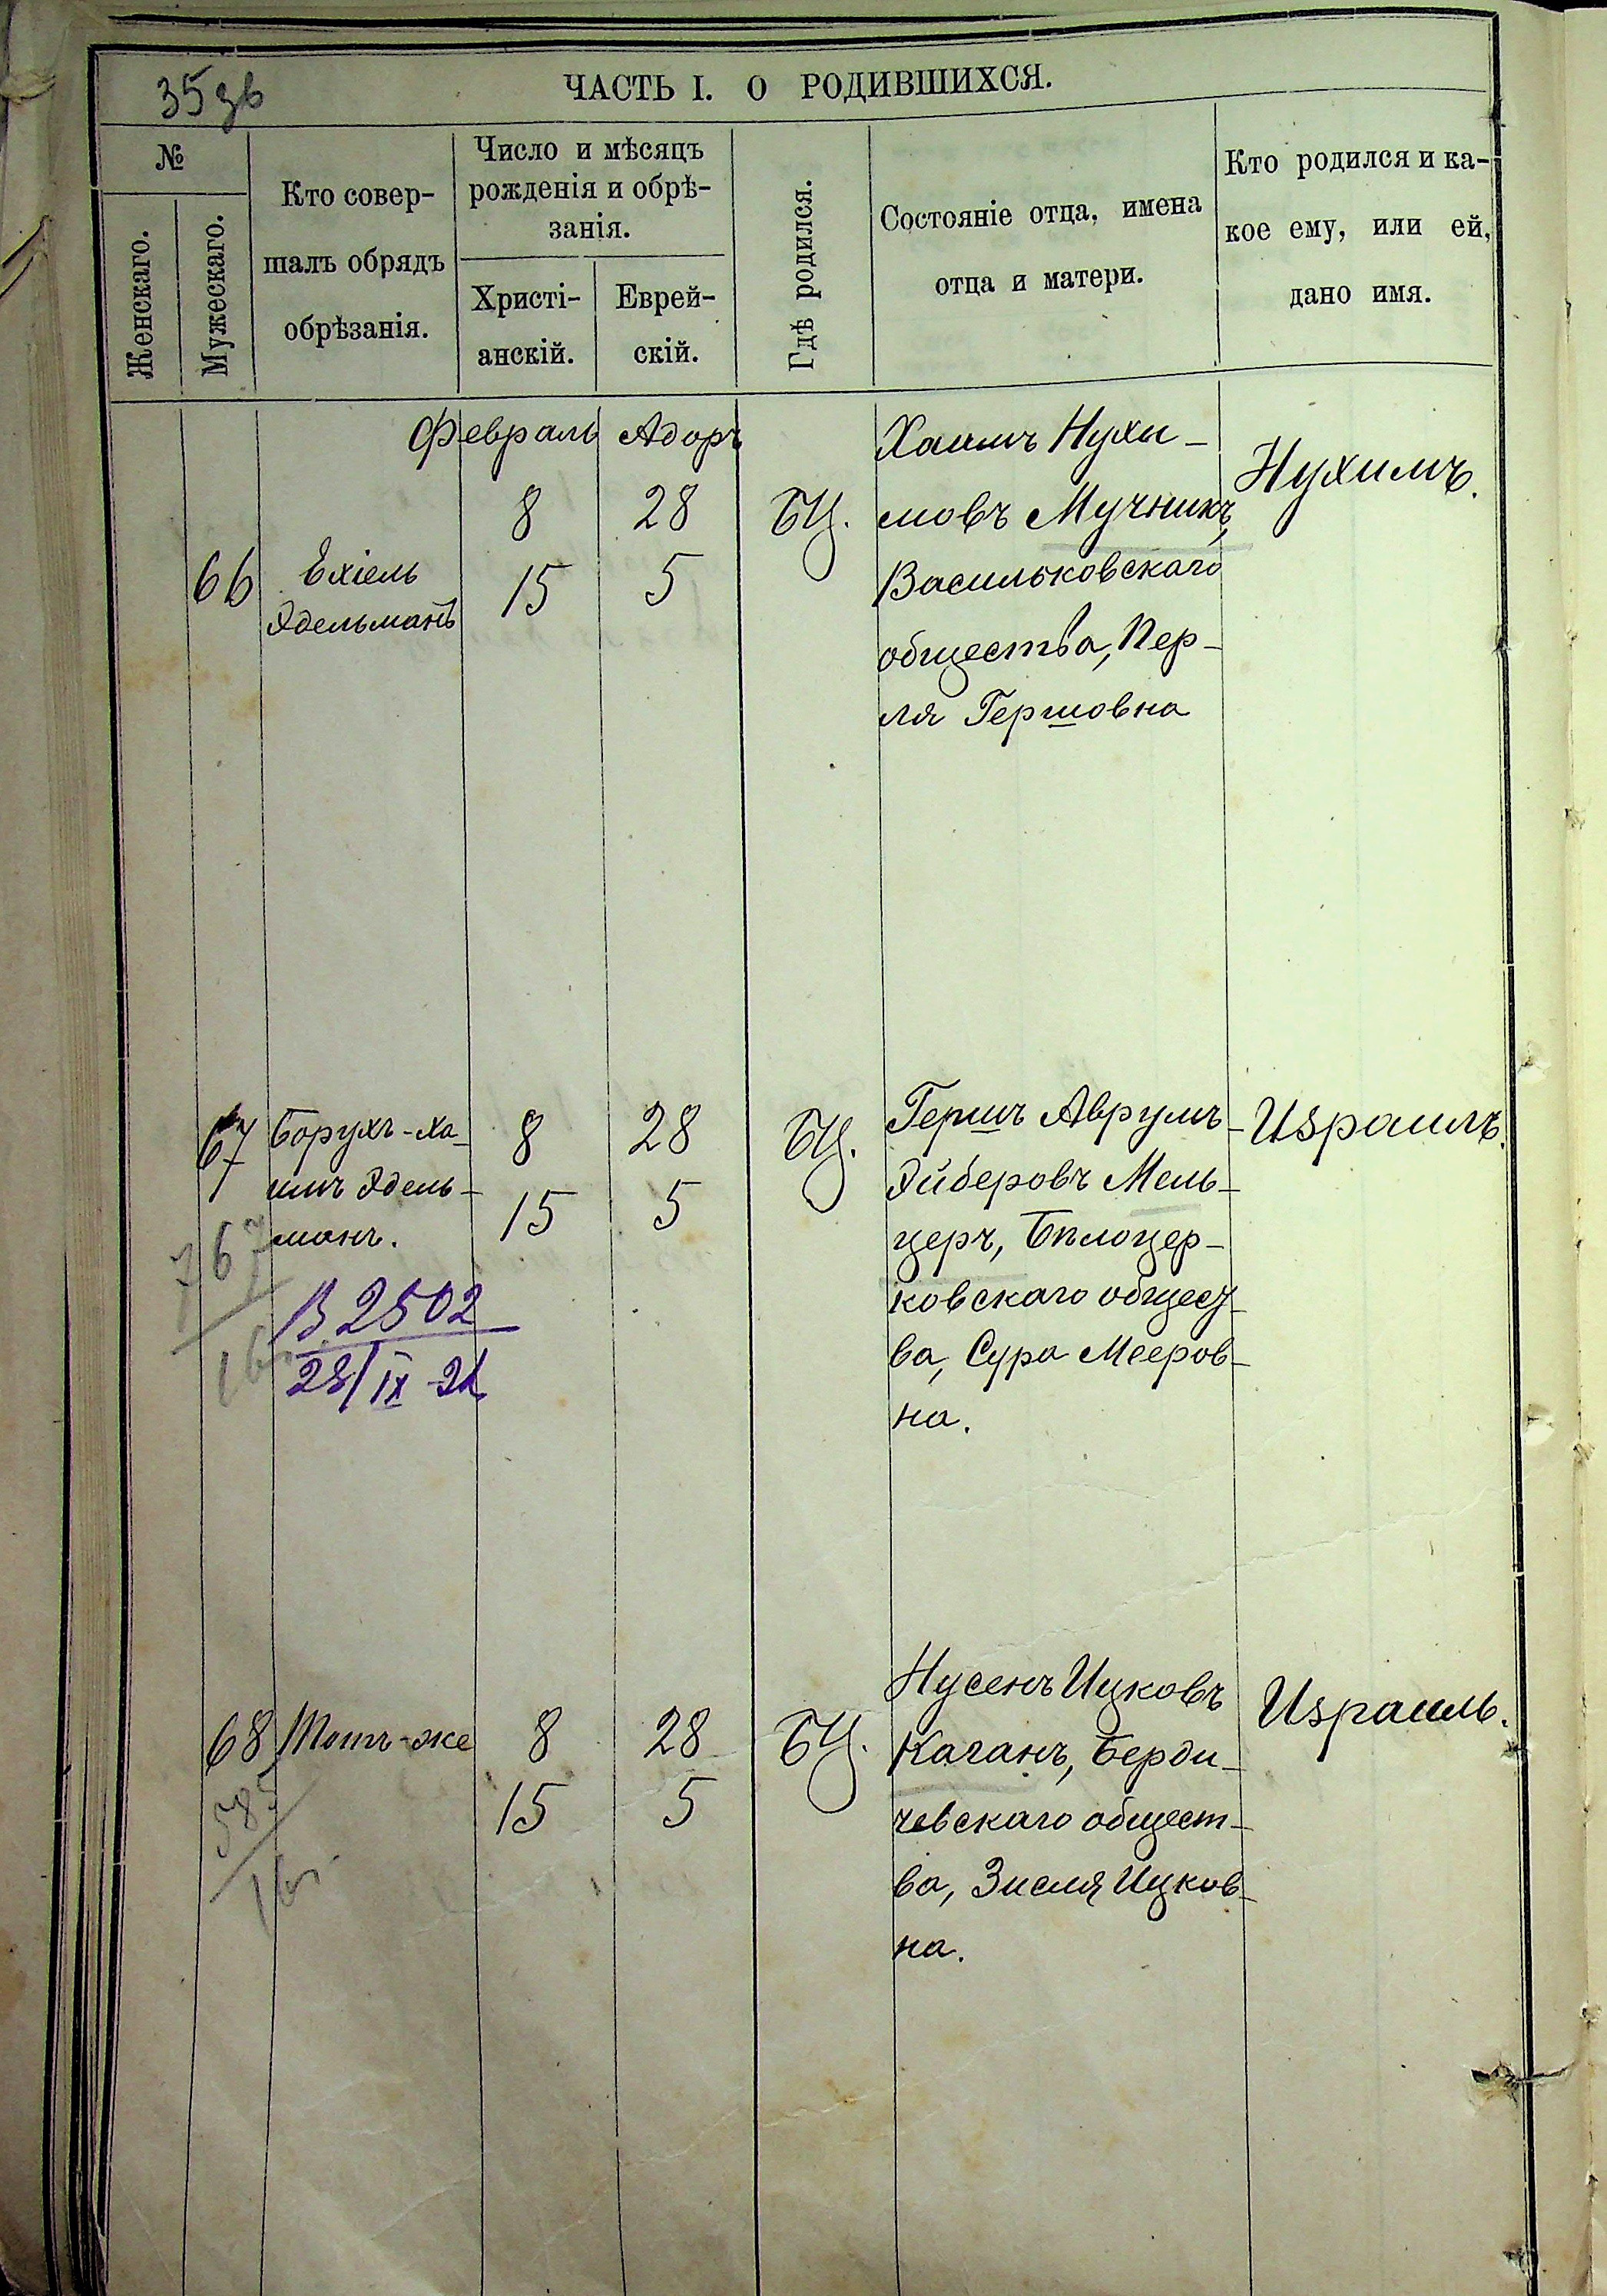 35зв
ЧАСТЬ I. О РОДИВШИХСЯ.
№
Женскаго.
Мужескаго.
Кто совер-
шалъ обрядъ
обрѣзанія.
Число и мѣсяцъ
рожденія и обрѣ-
занія.
Христі-
анскій.
Еврей-
скій.
Гдѣ родился.
Состояніе отца, имена
отца и матери.
Кто родился и ка-
кое ему, или ей,
дано имя.
Февраль Адоръ
66
Ехіель
Эдельманъ
8 28
15 5
БЦ.
Хаимъ Нухи-
мовъ Мучникъ,
Васильковскаго
общества, Пер-
ля Гершовна
Нухимъ.
67
Борухъ-Ха-
имъ Эдель-
манъ.
8 28
15 5
БЦ.
Гершъ Аврумъ-
Эйберовъ Мель-
церъ, Бѣлоцер-
ковскаго общест-
ва, Сура Мееров-
на.
Израилъ.
67
В 2502
28/IX
68
Тотъ-же
8 28
15 5
БЦ.
Нусенъ Ицковъ
Каганъ, Берди-
чевскаго общест-
ва, Зисля Ицков-
на.
Израиль.
585